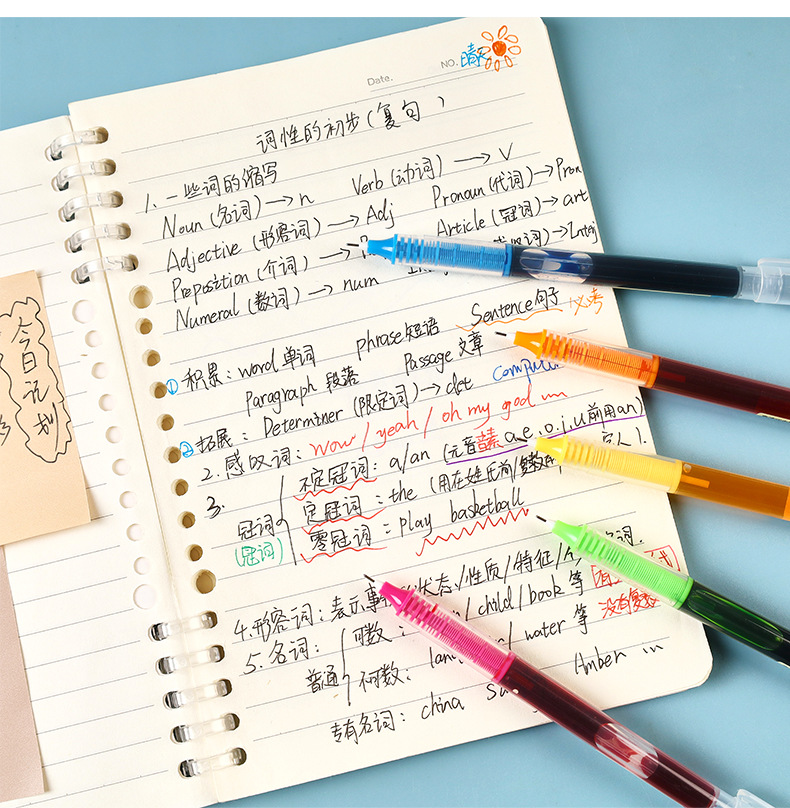 Date.
NO. 晴天
词性的初步(复句)
1、一些词的缩写
Noun(名词)→n Verb(动词)→V Pronoun(代词)→Pron
Adjective(形容词)→Adj Article(冠词)→art
Preposition(介词)→ 词)→Interj
Numeral(数词)→num
①积累:word单词 phrase短语 Sentence句子 必考
Paragraph 段落 Passage 文章
②拓展:Determiner(限定词)→det
2.感叹词:wow/yeah/oh my god
3.
冠词
(冠词)
不定冠词:a/an(元音音素a,e,o,i,u前用an)
定冠词:the(用在姓氏前/
零冠词:play basketball
4.形容词:表示事 状态/性质/特征/ 名词.
5.名词:
普通
可数: /child/book等
不可数: /water等
没有复数
专有名词:china Amber
今日计划